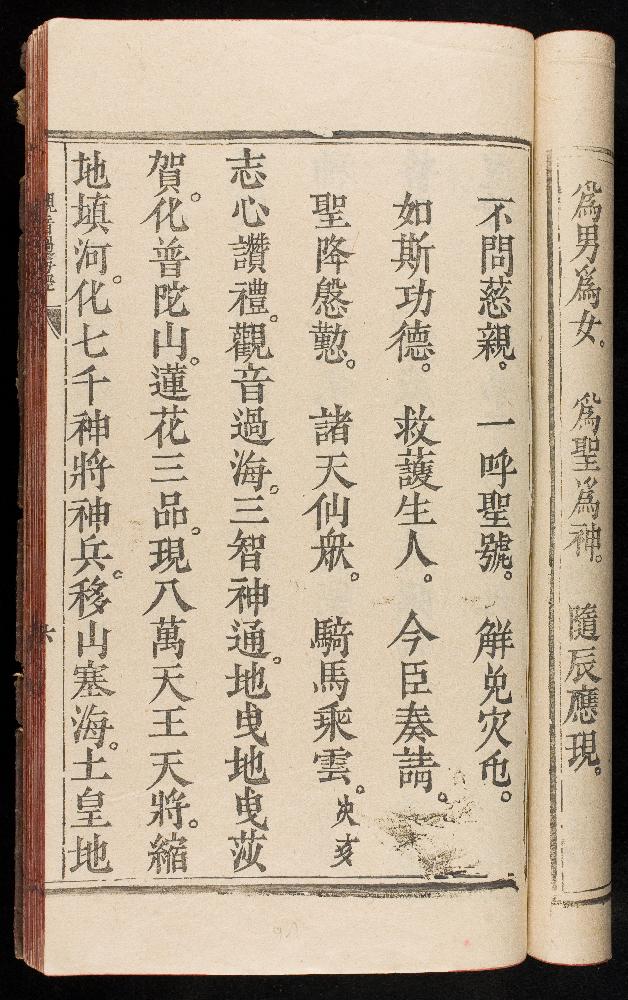 爲男爲女。爲聖爲神。隨辰應現。
不問慈親。一呼聖號。觧免灾危。
如斯功德。救護生人。今臣奏請。
聖降慇懃。諸天仙衆。騎馬乘雲。
志心讚禮。觀音過海。三智神通。地曳地曳莎
賀。化普陀山。蓮花三品。現八萬天王天將。縮
地填河。化七千神將神兵。移山塞海。土皇地
六